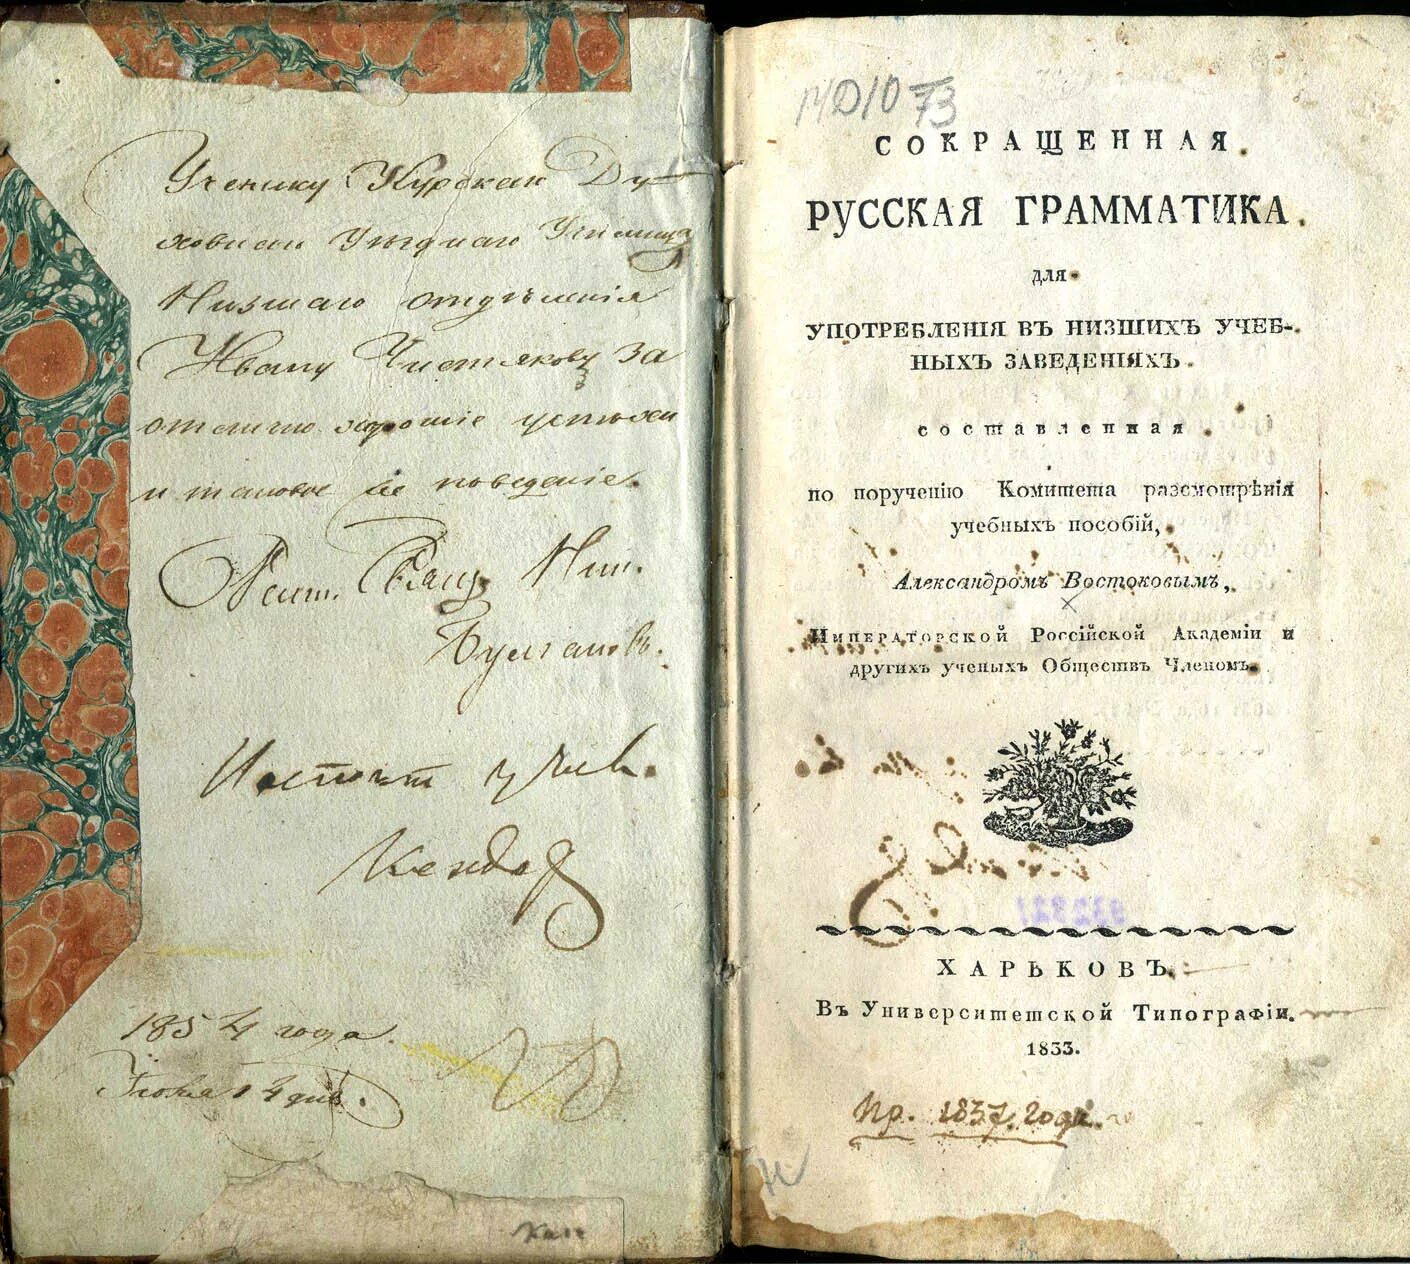 Ученику Курскаго Ду-
ховнаго Уѣзднаго Училища
Низшаго отдѣленія
Ивану Чистякову за
отлично хорошіе успѣхи
и таковое же поведеніе.
Свящ.
1854 года.
14 дня.
СОКРАЩЕННАЯ
РУССКАЯ ГРАММАТИКА
для
УПОТРЕБЛЕНІЯ ВЪ НИЗШИХЪ УЧЕБ-
НЫХЪ ЗАВЕДЕНІЯХЪ.
составленная
по порученію Комитета разсмотрѣнія
учебныхъ пособій,
Александромъ Востоковымъ,
Императорской Россійской Академіи и
другихъ ученыхъ Обществъ Членомъ.
ХАРЬКОВЪ.
Въ Университетской Типографіи.
1833.
Пр. 1837 года.